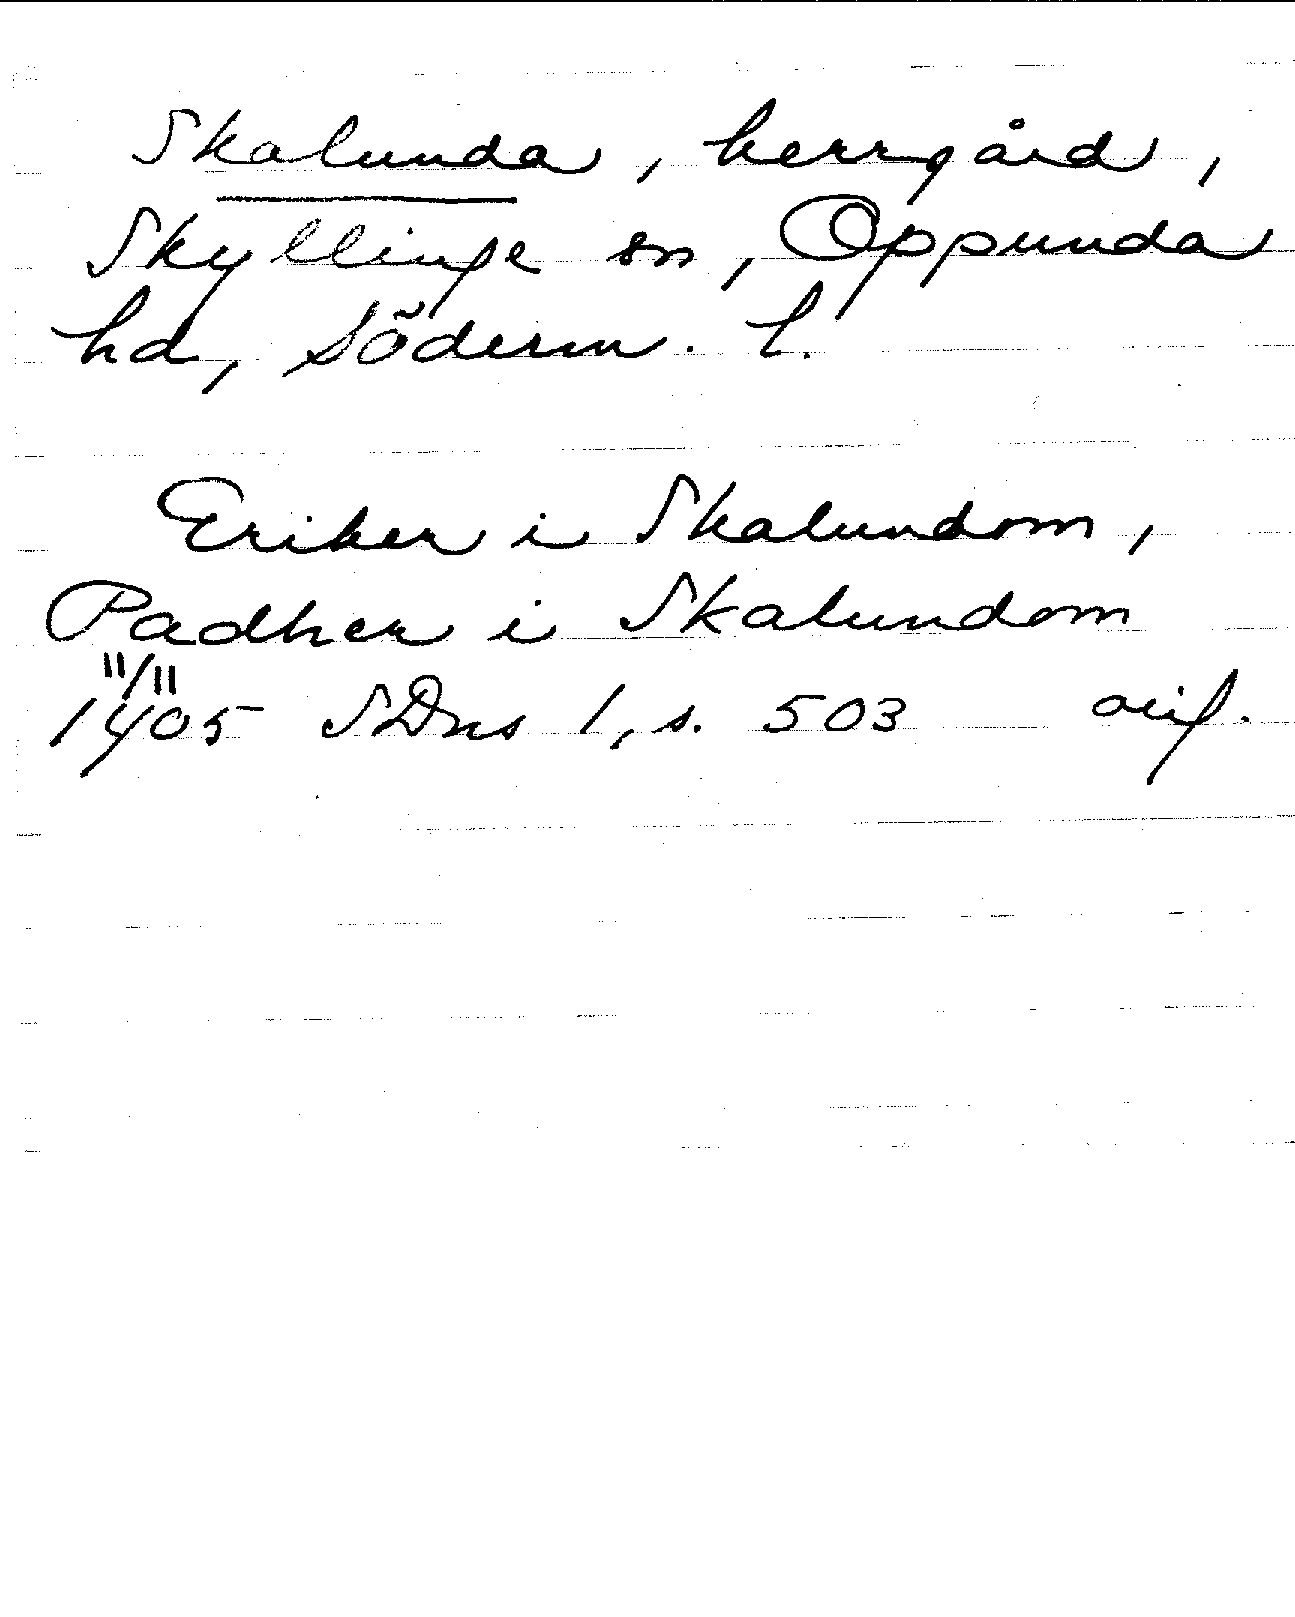 Skalunda, herrgård,
Skyllinge sn, Oppunda
hd, Söderm. l.
Eriker i Skalundom,
Padher i Skalundom
11/11
1405 SDns 1, s. 503 orif.